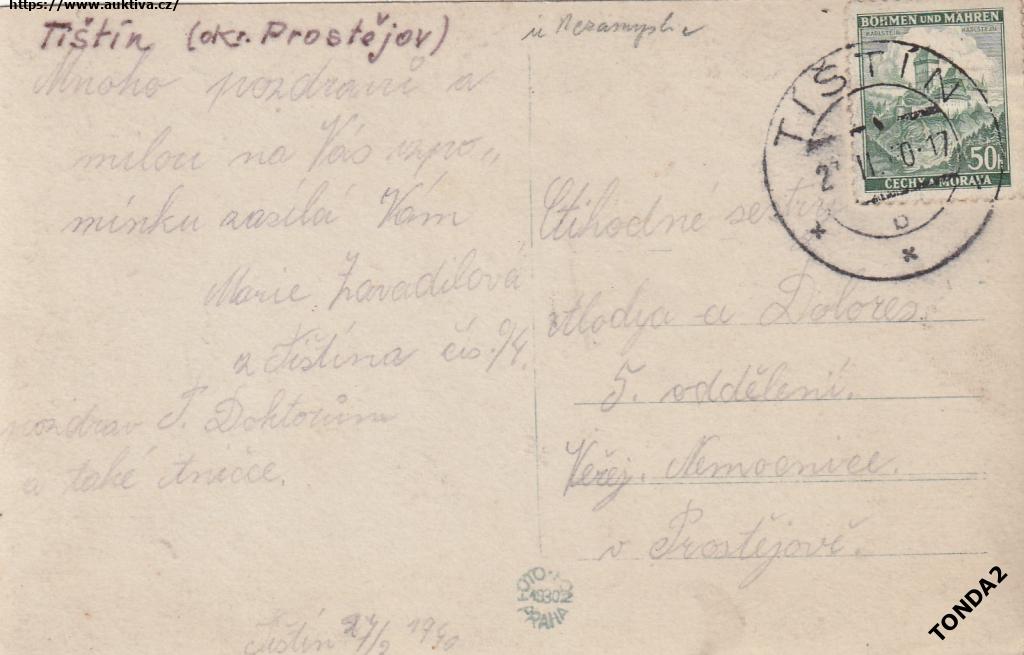 https://www.auktiva.cz/
Tištín (okr. Prostějov)
u Nezamyslic
Mnoho pozdravů a
milou na Vás vzpo„
mínku zasílá Vám
Marie Zavadilová
z Tištína čís.
pozdrav P. Doktorům
a také
Tištín 27/2 1940
BÖHMEN UND MAHREN
KARLSTEIN KARLŠTEJN
50h
ČECHY A MORAVA
TIŠTÍN
b
Ctihodné sestry
a Dolores.
5. oddělení.
Veřej. Nemocnice.
v Prostějově.
1930
PRAHA
TONDA2